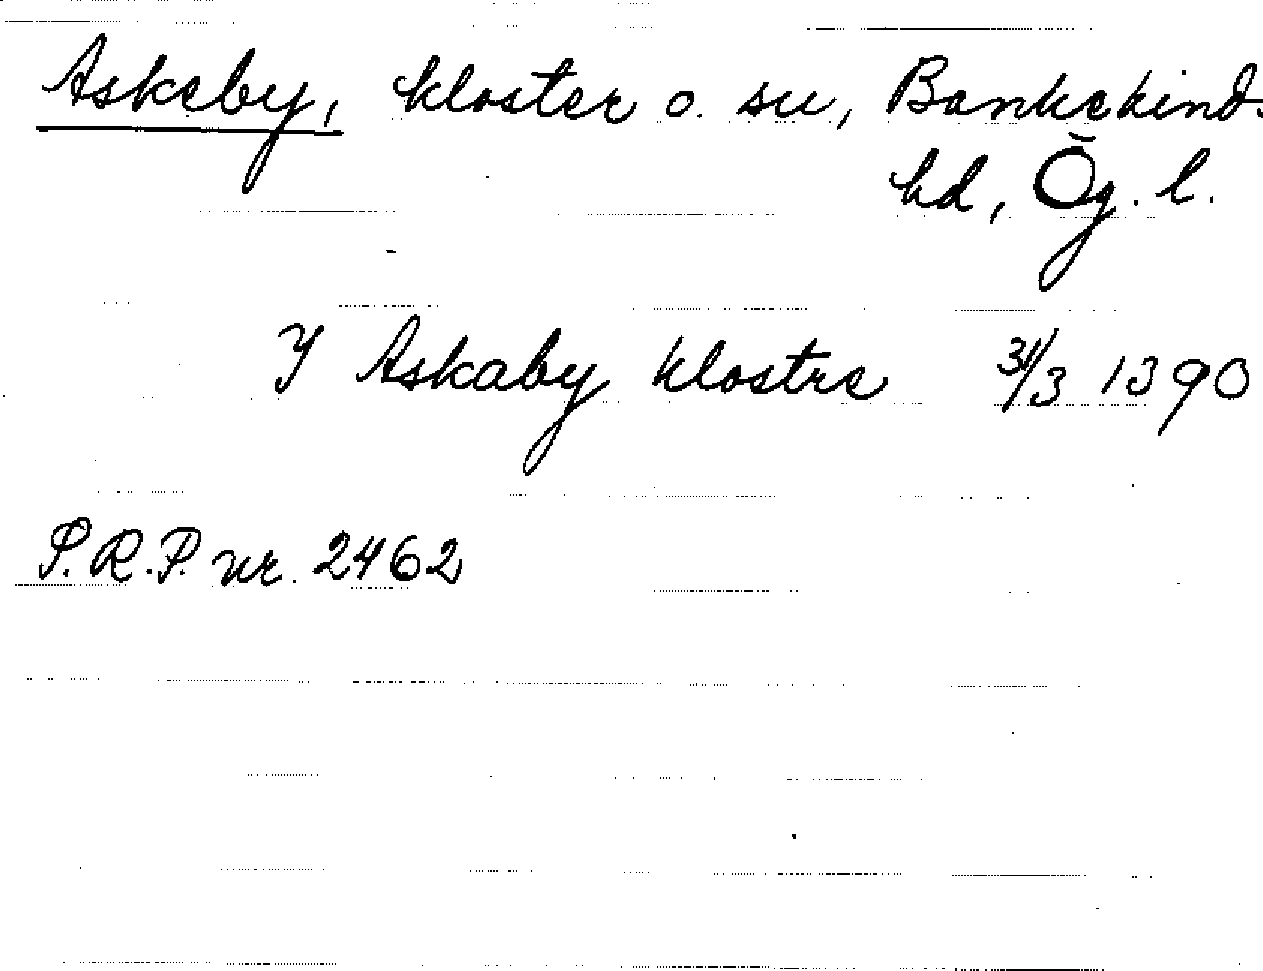 Askeby, kloster o. sn, Bankekind.
hd, Ög. l.
I Askaby klostre 31/3 1390
S.R.P. nr. 2462